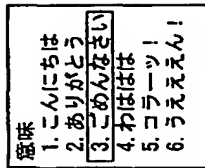 意味
1. こんにちは
2. ありがとう
3. ごめんなさい
4. わははは
5. コラーッ!
6. うえええん!